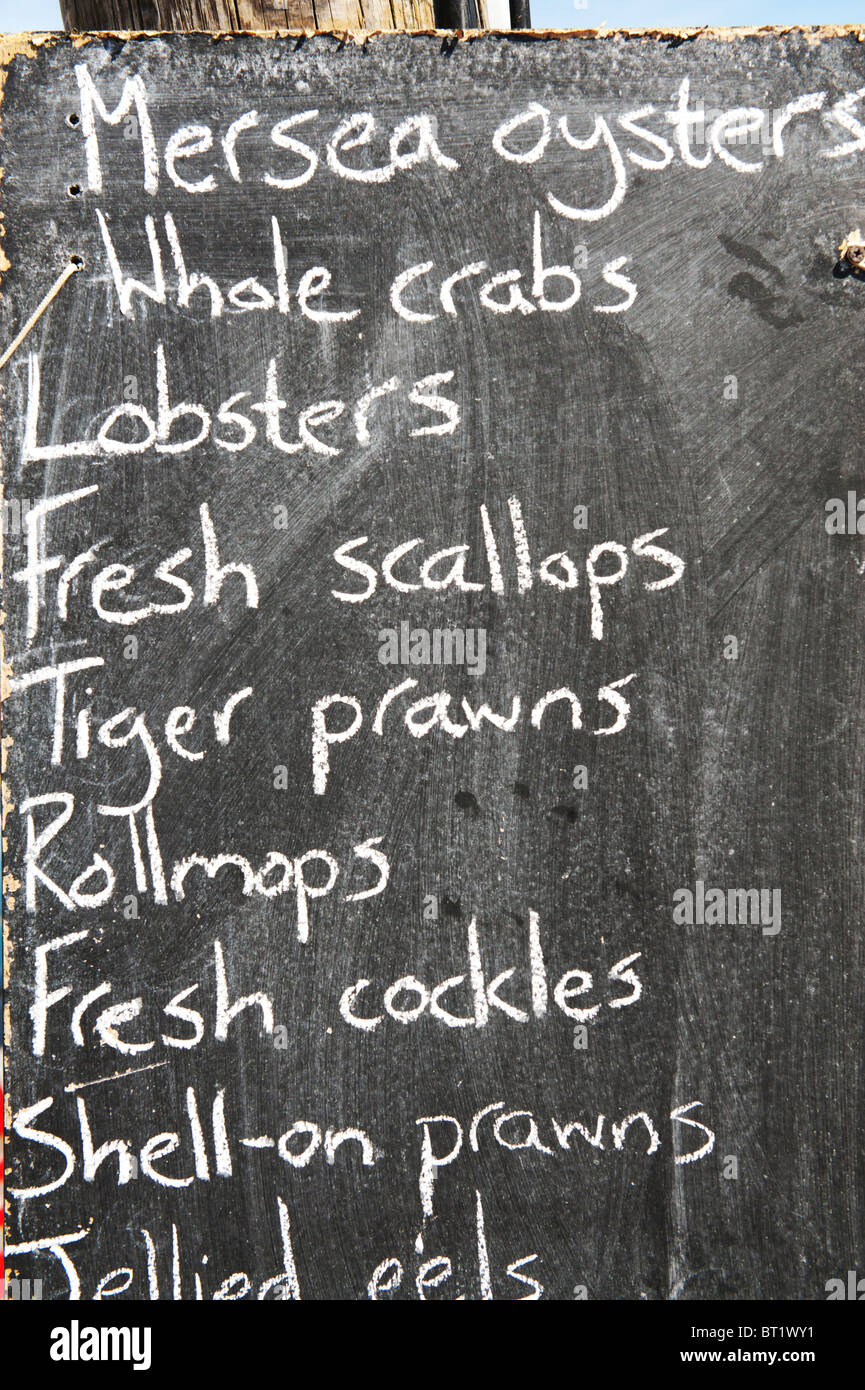 Mersea oysters
Whole crabs
Lobsters
Fresh scallops
Tiger prawns
Rollmops
Fresh cockles
Shell-on prawns
Jellied eels
alamy
Image ID: BT1WY1
www.alamy.com